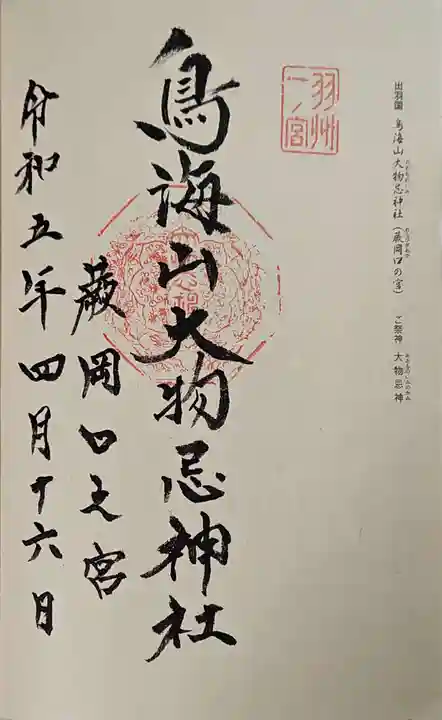 出羽国 鳥海山大物忌神社(蕨岡口の宮) ご祭神 大物忌神
羽州
一ノ宮
鳥海山大物忌神社
蕨岡口之宮
令和五年四月十六日